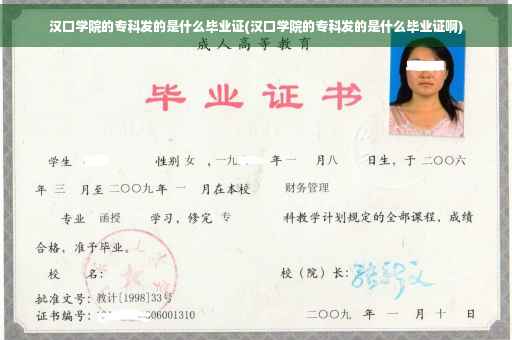 汉口学院的专科发的是什么毕业证(汉口学院的专科发的是什么毕业证啊)
成人高等教育
毕业证书
学生 性别 女 ，一九 年 一 月 八 日生，于 二〇〇六
年 三 月至 二〇〇九 年 一 月在本校 财务管理
专业 函授 学习，修完 专 科教学计划规定的全部课程，成绩
合格，准予毕业。
校 名： 校（院）长：
批准文号：教计[1998]33号
证书编号： 06001310 二〇〇九 年 一 月 十 日